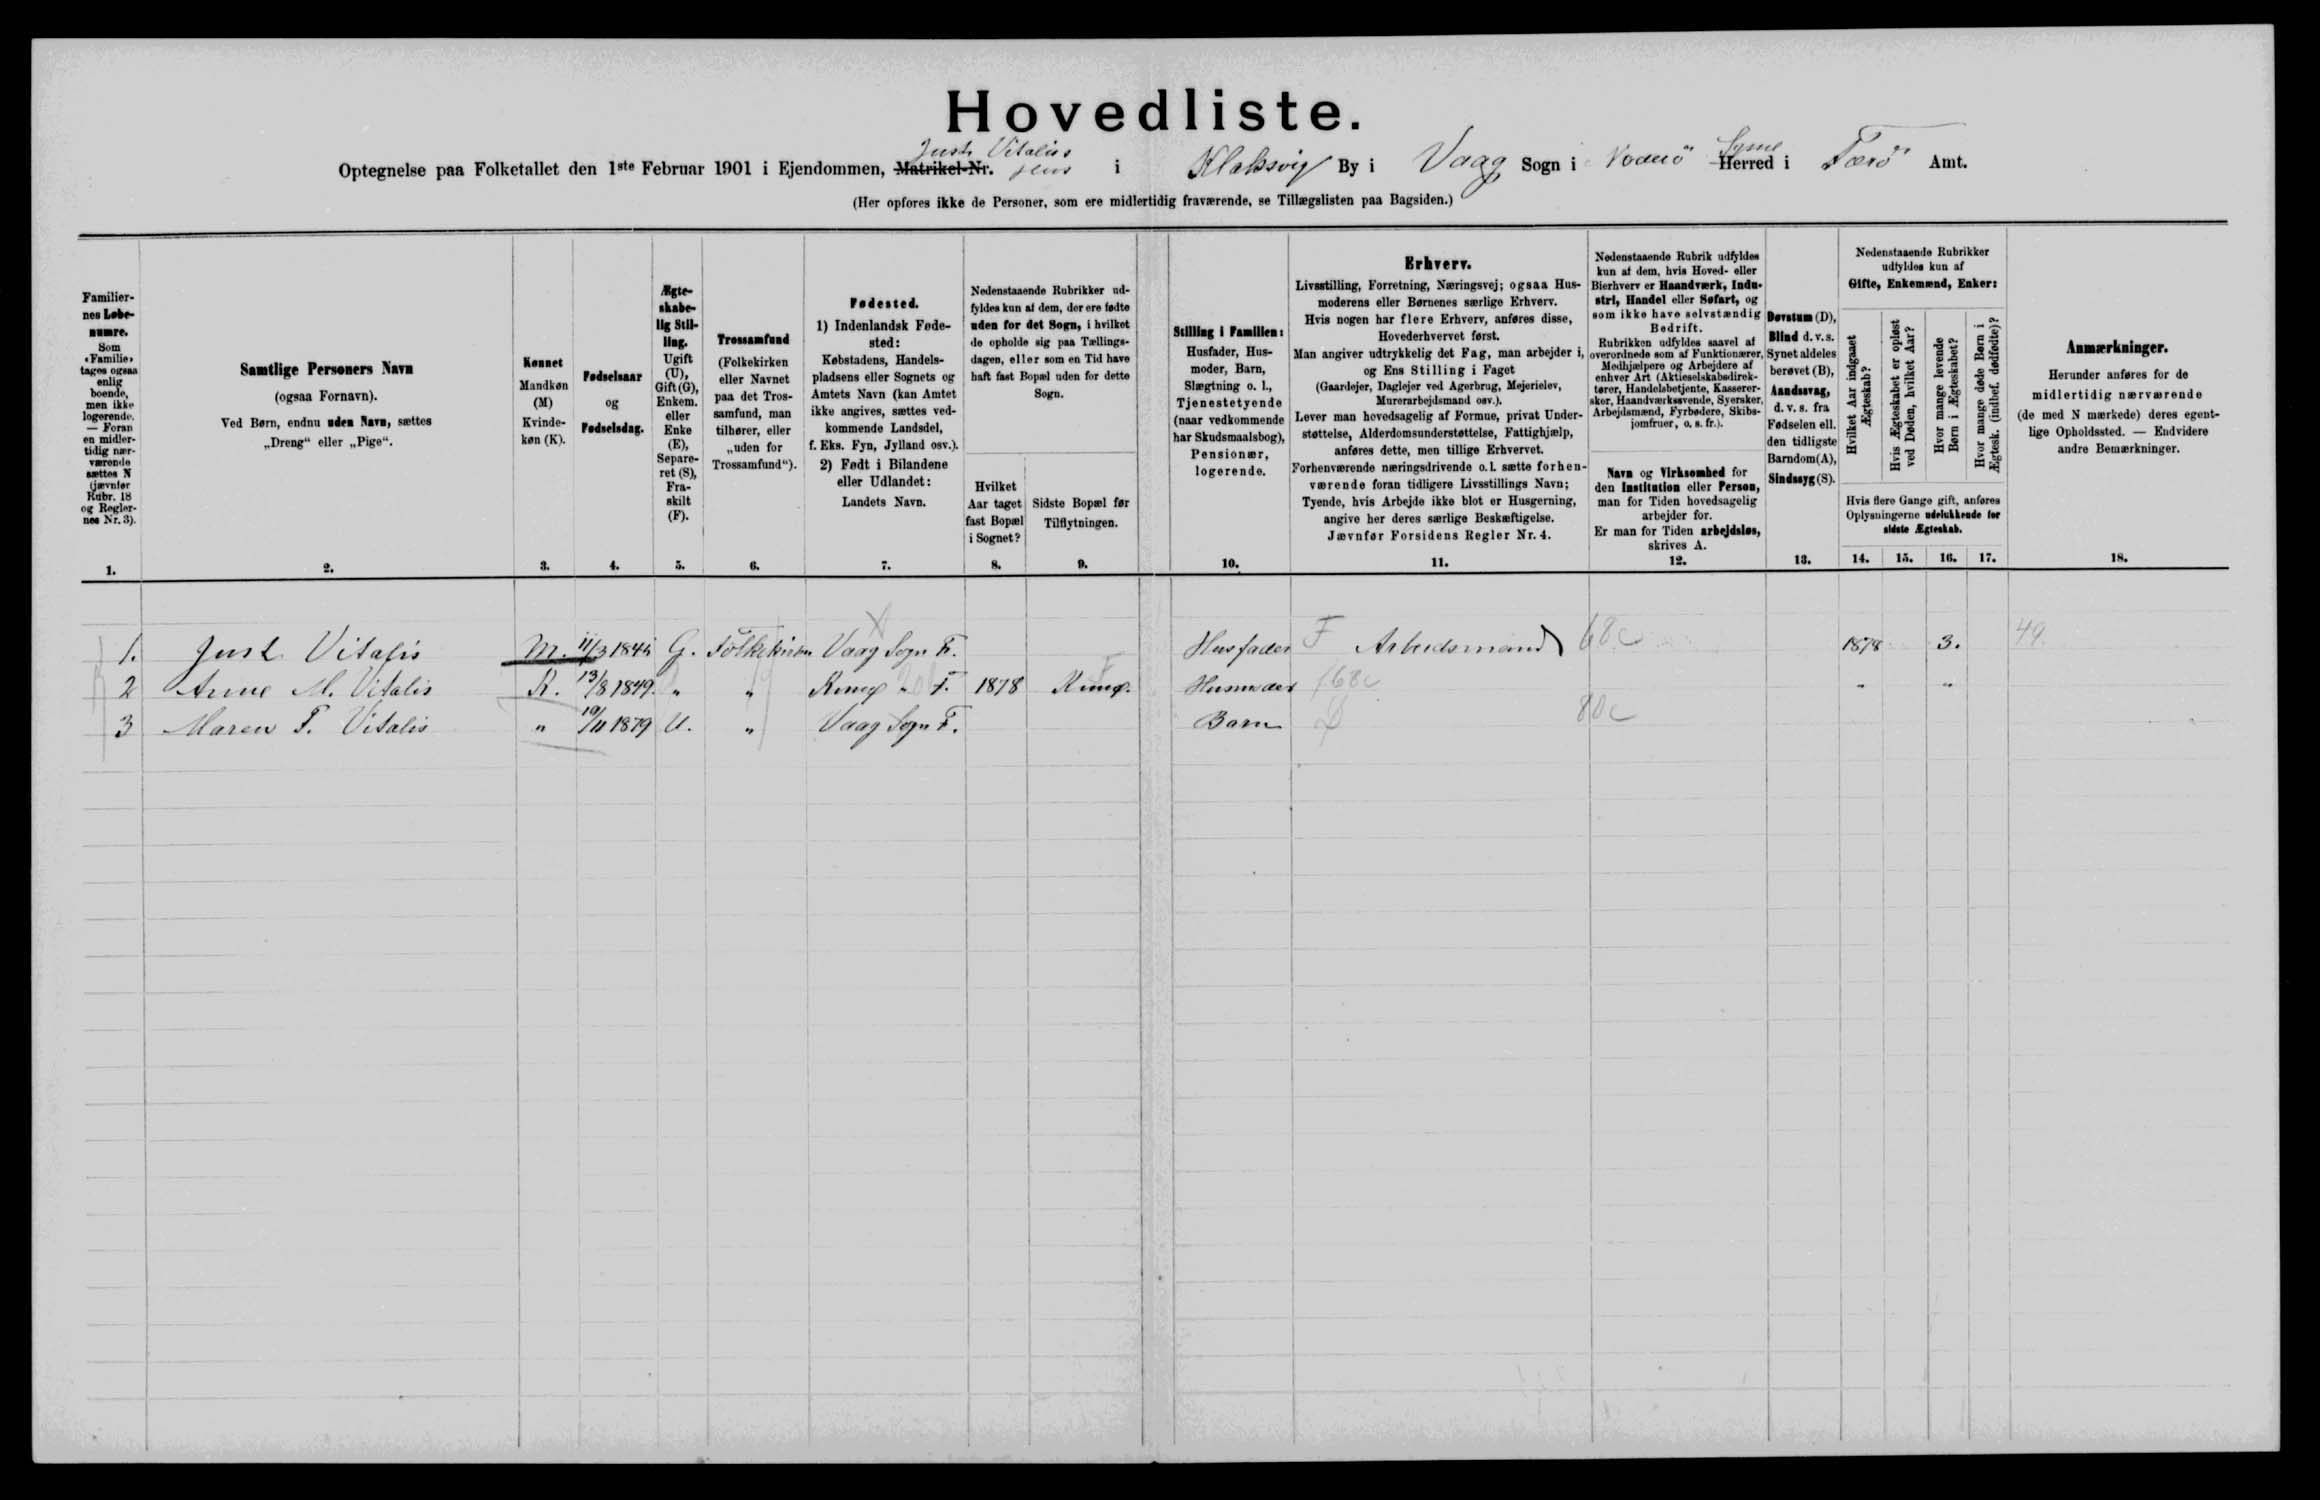 Hovedliste.
Just Vitaliss
Optegnelse paa Folketallet den 1ste Februar 1901 i Ejendommen, Matrikel-Nr. Hus i Klaksvig By i Vaag Sogn i Norderö Herred Sysel i Færö Amt.
(Her opføres ikke de Personer, som ere midlertidig fraværende, se Tillægslisten paa Bagsiden.)
Familiernes Løbenumre. Som «Familie» tages ogsaa enlig boende, men ikke logerende. — Foran en midlertidig nærværende sættes N (jævnfør Rubr. 18 og Reglernes Nr. 3).
Samtlige Personers Navn (ogsaa Fornavn). Ved Børn, endnu uden Navn, sættes „Dreng“ eller „Pige“.
Kønnet Mandkøn (M) Kvindekøn (K).
Fødselsaar og Fødselsdag.
Ægteskabelig Stilling. Ugift (U), Gift (G), Enkem. eller Enke (E), Separeret (S), Fraskilt (F).
Trossamfund (Folkekirken eller Navnet paa det Trossamfund, man tilhører, eller „uden for Trossamfund“).
Fødested. 1) Indenlandsk Fødested: Købstadens, Handelspladsens eller Sognets og Amtets Navn (kan Amtet ikke angives, sættes vedkommende Landsdel, f. Eks. Fyn, Jylland osv.). 2) Født i Bilandene eller Udlandet: Landets Navn.
Nedenstaaende Rubrikker udfyldes kun af dem, der ere fødte uden for det Sogn, i hvilket de opholde sig paa Tællingsdagen, eller som en Tid have haft fast Bopæl uden for dette Sogn.
Hvilket Aar taget fast Bopæl i Sognet?
Sidste Bopæl før Tilflytningen.
Stilling i Familien: Husfader, Husmoder, Barn, Slægtning o. l., Tjenestetyende (naar vedkommende har Skudsmaalsbog), Pensionær, logerende.
Erhverv.
Livsstilling, Forretning, Næringsvej; ogsaa Husmoderens eller Børnenes særlige Erhverv.
Hvis nogen har flere Erhverv, anføres disse, Hovederhvervet først.
Man angiver udtrykkelig det Fag, man arbejder i, og Ens Stilling i Faget
(Gaardejer, Daglejer ved Agerbrug, Mejerielev, Murerarbejdsmand osv.).
Lever man hovedsagelig af Formue, privat Understøttelse, Alderdomsunderstøttelse, Fattighjælp, anføres dette, men tillige Erhvervet.
Forhenværende næringsdrivende o. l. sætte forhenværende foran tidligere Livsstillings Navn;
Tyende, hvis Arbejde ikke blot er Husgerning, angive her deres særlige Beskæftigelse.
Jævnfør Forsidens Regler Nr. 4.
Nedenstaaende Rubrik udfyldes kun af dem, hvis Hoved- eller Bierhverv er Haandværk, Industri, Handel eller Søfart, og som ikke have selvstændig Bedrift.
Rubrikken udfyldes saavel af overordnede som af Funktionærer, Medhjælpere og Arbejdere af enhver Art (Aktieselskabsdirektører, Handelsbetjente, Kassererskor, Haandværkssvende, Syersker, Arbejdsmænd, Fyrbødere, Skibsjomfruer, o. s. fr.).
Navn og Virksomhed for den Institution eller Person, man for Tiden hovedsagelig arbejder for.
Er man for Tiden arbejdsløs, skrives A.
Døvstum (D), Blind d. v. s. Synet aldeles berøvet (B), Aandssvag, d. v. s. fra Fødselen ell. den tidligste Barndom (A), Sindssyg (S).
Nedenstaaende Rubrikker udfyldes kun af Gifte, Enkemænd, Enker:
Hvilket Aar indgaaet Ægteskab?
Hvis Ægteskabet er opløst ved Døden, hvilket Aar?
Hvor mange levende Børn i Ægteskabet?
Hvor mange døde Børn i Ægtesk. (indbef. dødfødte)?
Hvis flere Gange gift, anføres Oplysningerne udelukkende for sidste Ægteskab.
Anmærkninger. Herunder anføres for de midlertidig nærværende (de med N mærkede) deres egentlige Opholdssted. — Endvidere andre Bemærkninger.
1. 2. 3. 4. 5. 6. 7. 8. 9. 10. 11. 12. 13. 14. 15. 16. 17. 18.
1. Just Vitalis M. 11/3 G. Folkekirken Vaag Sogn F. Husfader F Arbeidsmand 68c 1878 3. 49
2 Anne M. Vitalis K. 13/8 1849. „ „ „ F. 1878 Husmoder 68c „ „
3 Maren F. Vitalis „ 19/11 1879 U. „ Vaag Sogn F. Barn 80c